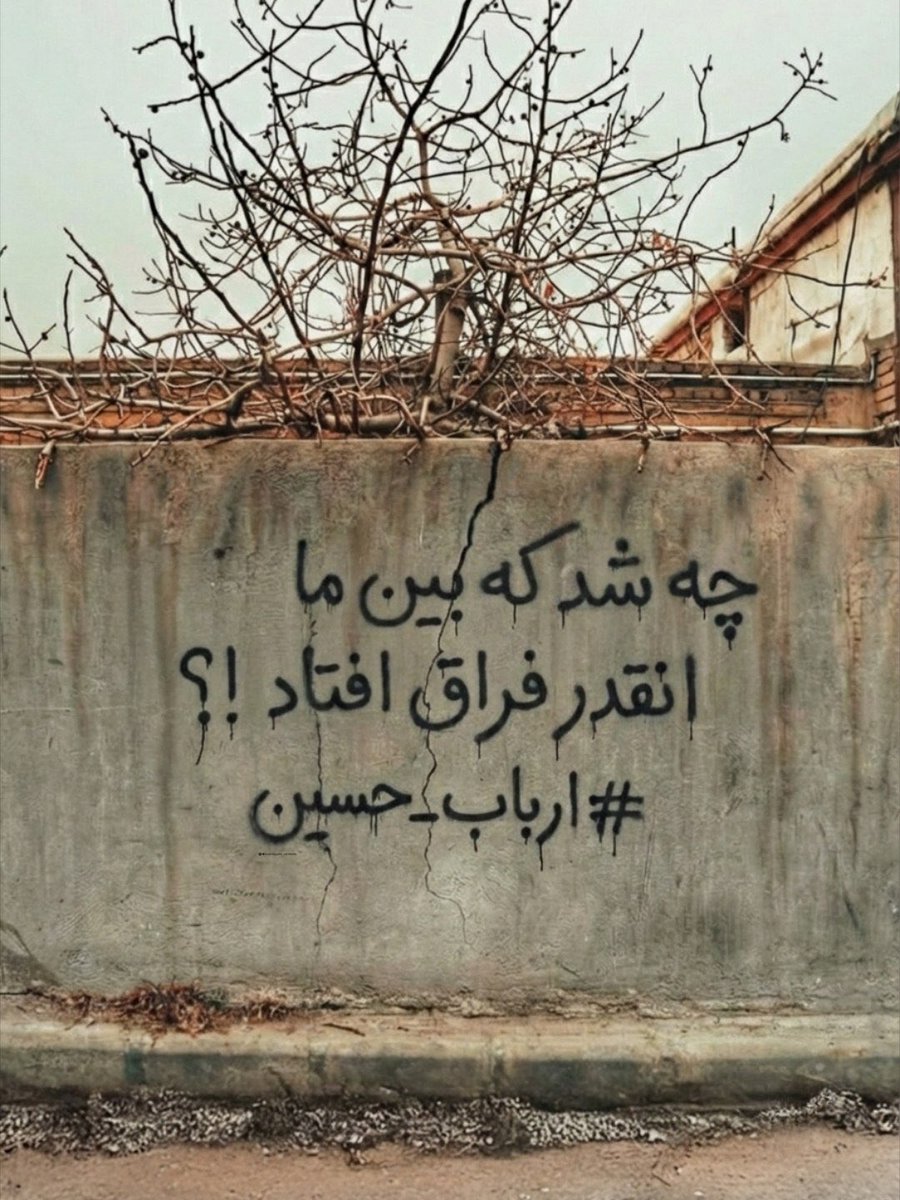 چه شد که بین ما
انقدر فراق افتاد !؟
#ارباب_حسین